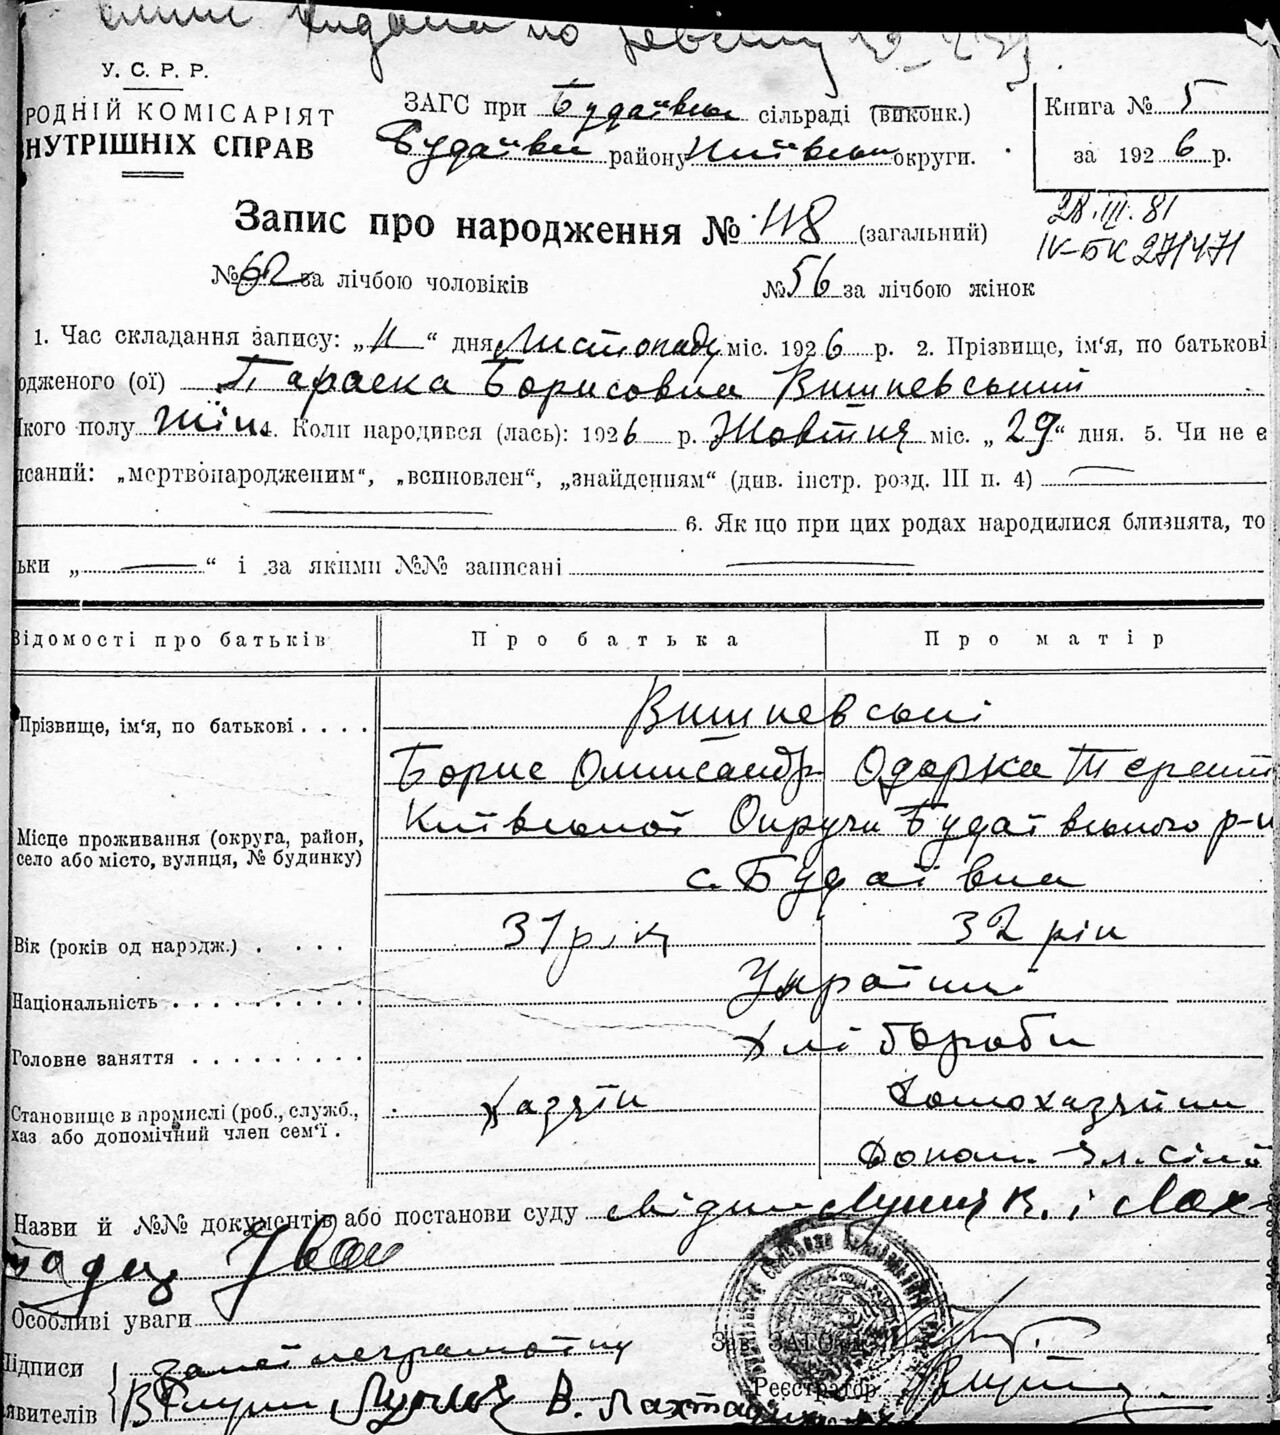 У. С. Р. Р.
РОДНІЙ КОМІСАРІЯТ
НУТРІШНІХ СПРАВ
ЗАГС при Будаївськ сільраді (виконк.)
Будаївськ району Київськ округи.
Книга № 5
за 1926 р.
Запис про народження № 118 (загальний)
28.III.81
IV-БК 271471
№ 62 за лічбою чоловіків № 56 за лічбою жінок
1. Час складання запису: „11“ дня Листопаду міс. 1926 р. 2. Прізвище, ім‘я, по батькові
одженого (ої) Параска Борисовна Вишневський
кого полу жін. 4. Коли народився (лась): 1926 р. Жовтня міс. „29“ дня. 5. Чи не є
исаний: „мертвонародженим“, „всиновлен“, „знайденням“ (див. інстр. розд. III п. 4)
6. Як що при цих родах народилися близнята, то
ьки „ “ і за якими №№ записані
Відомості про батьків Про батька Про матір
Прізвище, ім‘я, по батькові . . . . Вишневські
Борис Олександр Одарка Терент
Місце проживання (округа, район, село або місто, вулиця, № будинку) Київської Округи Будаївського р-н
с. Будаївка
Вік (років од народж.) . . . . . 31 рік 32 рік
Національність . . . . . . . . . . Українці
Головне заняття . . . . . . . . . Хлібороби
Становище в промислі (роб., служб., хаз або допомічний член сем‘ї . Хазяїн Домохазяйки
Допом. чл. сім‘ї
Назви й №№ документів або постанови суду свідки Луцик В. і Лах-
тадир Іван
Особливі уваги
Зав. ЗАГС‘ом
ідписи
заяві неграмотну
Реєстратор
явителів
В. Лахтадир